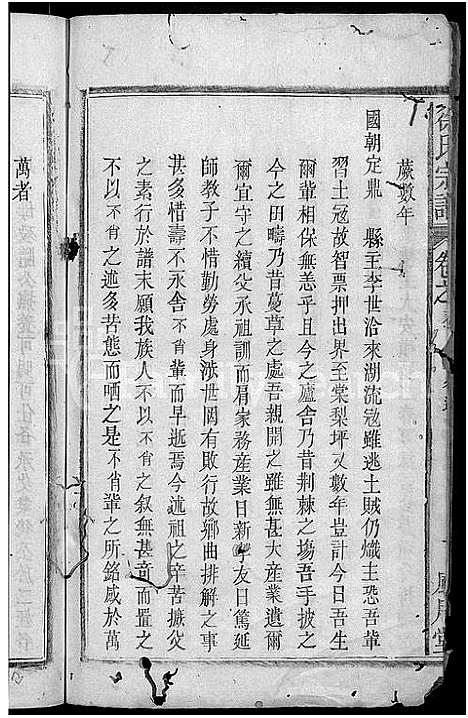 蕨數年
國朝定鼎 縣主李世洽來湖流冦雖逃土賊仍熾主恐吾輩
習土冦故智票押出界至棠梨坪又數年豈計今日吾生
爾輩相保無恙乎且今之廬舍乃昔荆棘之塲吾手披之
今之田疇乃昔蔓草之處吾親開之雖無甚大產業遺爾
爾宜守之續殳承祖訓而肩家務産業日新孝友日篤延
師教子不惜勤勞處身涉世罔有敗行故鄉曲排解之事
甚多惜壽不永舍不肖輩而早逝焉今述祖之辛苦擴殳
之素行於譜末願我族人不以不肖之叙無甚竒而置之
不以不肖之述多苦態而哂之是不肖輩之所銘感於萬
萬者
氏宗譜 卷之